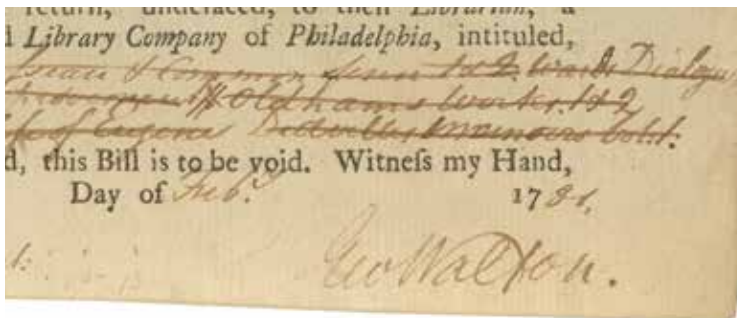 return, undefaced, to their Librarian, a
d Library Company of Philadelphia, intituled,
& Common Sense 1&2. Ward's Dialogu
Oldhams Works. 1&2
of Eugene Memoirs Vol 1.
d, this Bill is to be void. Witneſs my Hand,
Day of Feb.y 1781.
Geo Walton.